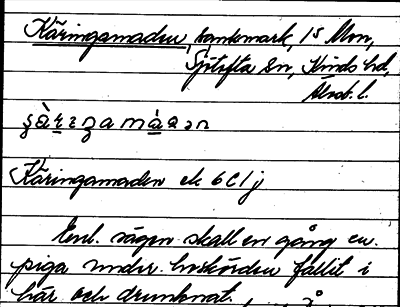 Käringamaden, sankmark, 15 Mon,
Sjötofta sn, Kinds hd,
Älvsb. l.
Käringamaden ek 6C1j
Enl. sägen skall en gång en
piga under höskörden fallit i
här och drunknat.